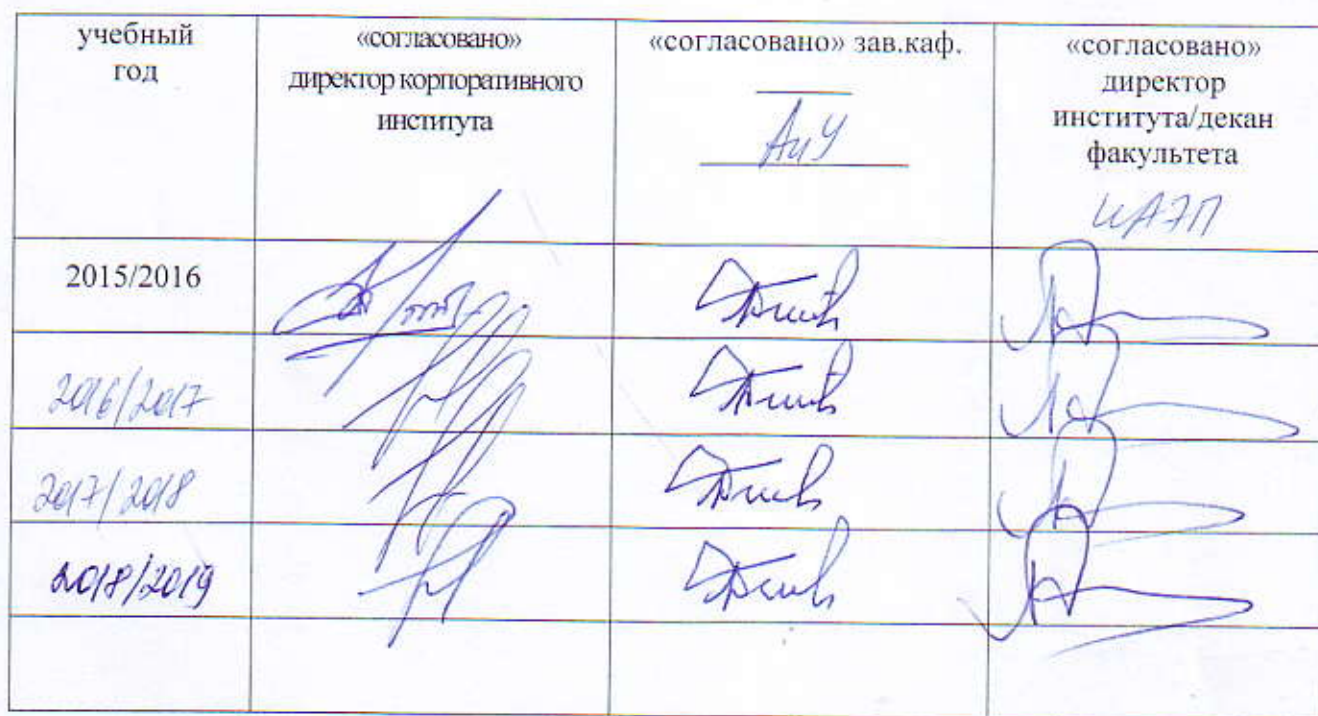 учебный
год
«согласовано»
директор корпоративного
института
«согласовано» зав.каф.
АиУ
«согласовано»
директор
института/декан
факультета
ИАЭП
2015/2016
2016/2017
2017/2018
2018/2019